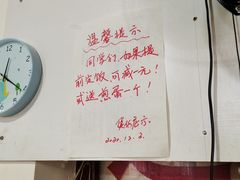 温馨提示
同学们，如果提
前定饭，可减一元！
或送煎蛋一个！
2020.12.2.